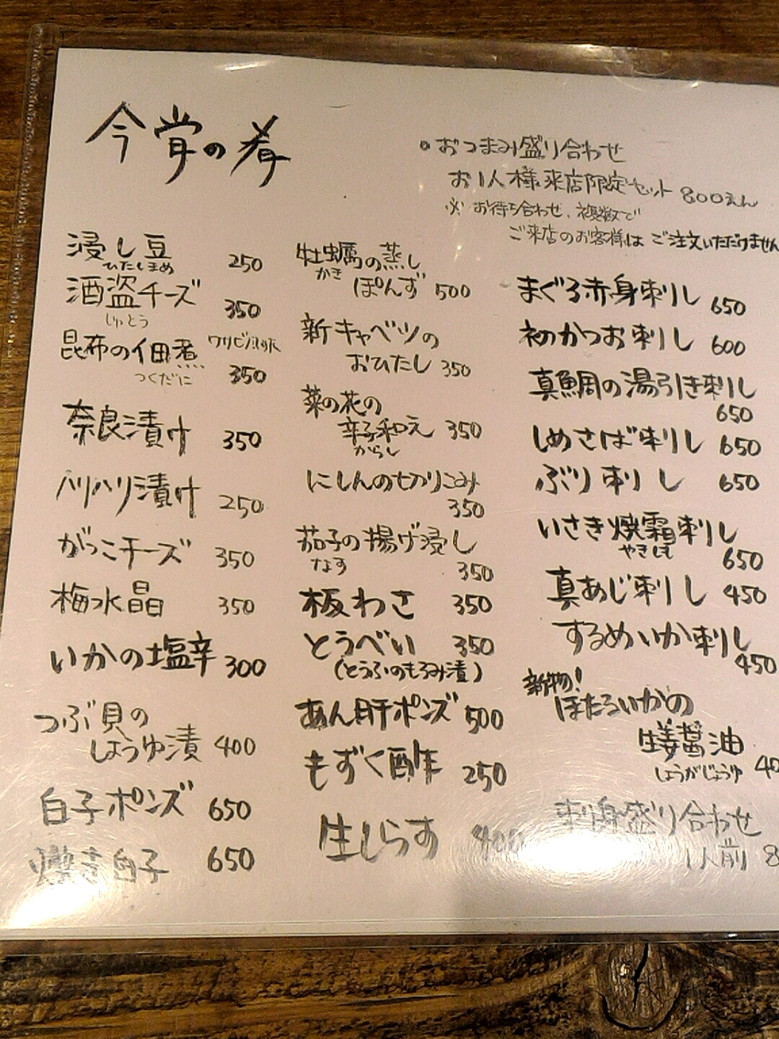 今宵の肴
・おつまみ盛り合わせ
お1人様来店限定セット 800えん
※ お待ち合わせ、複数で
ご来店のお客様は ご注文いただけません
浸し豆 250
ひたしまめ
酒盗チーズ 350
しゅとう
昆布の佃煮 350
つくだに
奈良漬け 350
ハリハリ漬け 250
がっこチーズ 350
梅水晶 350
いかの塩辛 300
つぶ貝の
しょうゆ漬 400
白子ポンズ 650
白子 650
牡蠣の蒸し
かき
ぽんず 500
新キャベツの
おひたし 350
菜の花の
辛子和え 350
からし
にしんの切りこみ
350
茄子の揚げ浸し
なす
350
板わさ 350
とうべい 350
(とうふのもろみ漬)
あん肝ポンズ 500
もずく酢 250
生しらす 400
まぐろ赤身刺し 650
初かつお刺し 600
真鯛の湯引き刺し
650
しめさば刺し 650
ぶり刺し 650
いさき焼霜刺し
やきしも
650
真あじ刺し 450
するめいか刺し
450
新物!
ほたるいかの
生姜醤油
しょうがじょうゆ 40
刺身盛り合わせ
1人前 8